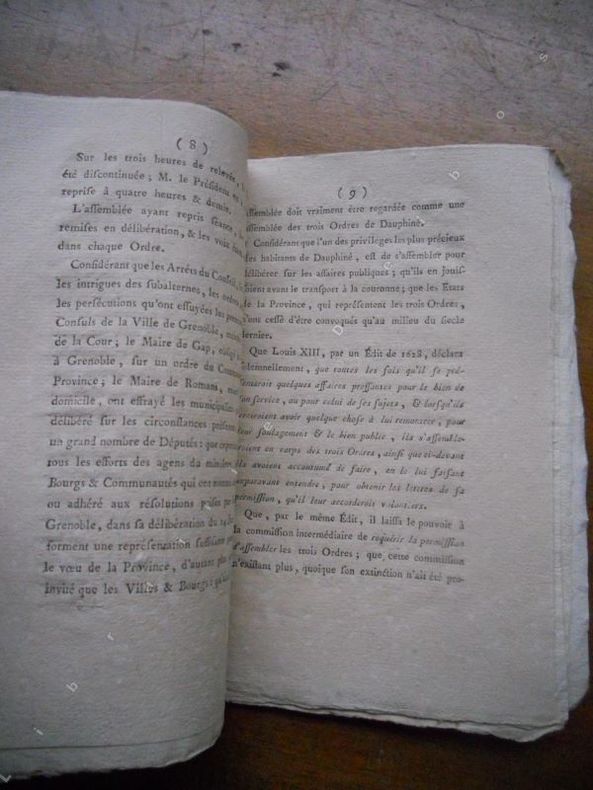 ( 8 )
Sur les trois heures de relevée,
été discontinuée ; M. le Président
reprise à quatre heures & demie.
L'assemblée ayant repris séance,
remises en délibération, & les voix
dans chaque Ordre.
Considérant que les Arrêts du Conseil,
les intrigues des subalternes, les ordres
les persécutions qu'ont essuyées les
Consuls de la Ville de Grenoble,
de la Cour ; le Maire de Gap, obligé
à Grenoble, sur un ordre du
Province ; le Maire de Romans,
domicile, ont effrayé les municipal
délibéré sur les circonstances présen
un grand nombre de Députés : que
tous les efforts des agens du ministe
Bourgs & Communautés qui ont nommé
ou adhéré aux résolutions prises
Grenoble, dans sa délibération du 14
forment une représentation suffisante
le vœu de la Province, d'autant plus
invité que les Villes & Bourgs :
( 9 )
assemblée doit vraiment être regardée comme une
assemblée des trois Ordres de Dauphiné.
Considérant que l'un des privileges les plus précieux
des habitants de Dauphiné, est de s'assembler pour
délibérer sur les affaires publiques ; qu'ils en jouis-
soient avant le transport à la couronne ; que les Etats
de la Province, qui représentent les trois Ordres,
n'ont cessé d'être convoqués qu'au milieu du siecle
dernier.
Que Louis XIII, par un Edit de 1628, déclara
solemnellement, que toutes les fois qu'il se pré-
senteroit quelques affaires pressantes pour le bien de
son service, ou pour celui de ses sujets, & lorsqu'ils
croiroient avoir quelque chose à lui remontrer, pour
leur soulagement & le bien public, ils s'assemble-
roient en corps des trois Ordres, ainsi que ci-devant
ils avoient accoutumé de faire, en le lui faisant
auparavant entendre, pour obtenir les lettres de sa
permission, qu'il leur accorderoit volontiers.
Que, par le même Edit, il laissa le pouvoir à
la commission intermédiaire de requérir la permission
d'assembler les trois Ordres ; que cette commission
n'existant plus, quoique son extinction n'ait été pro-